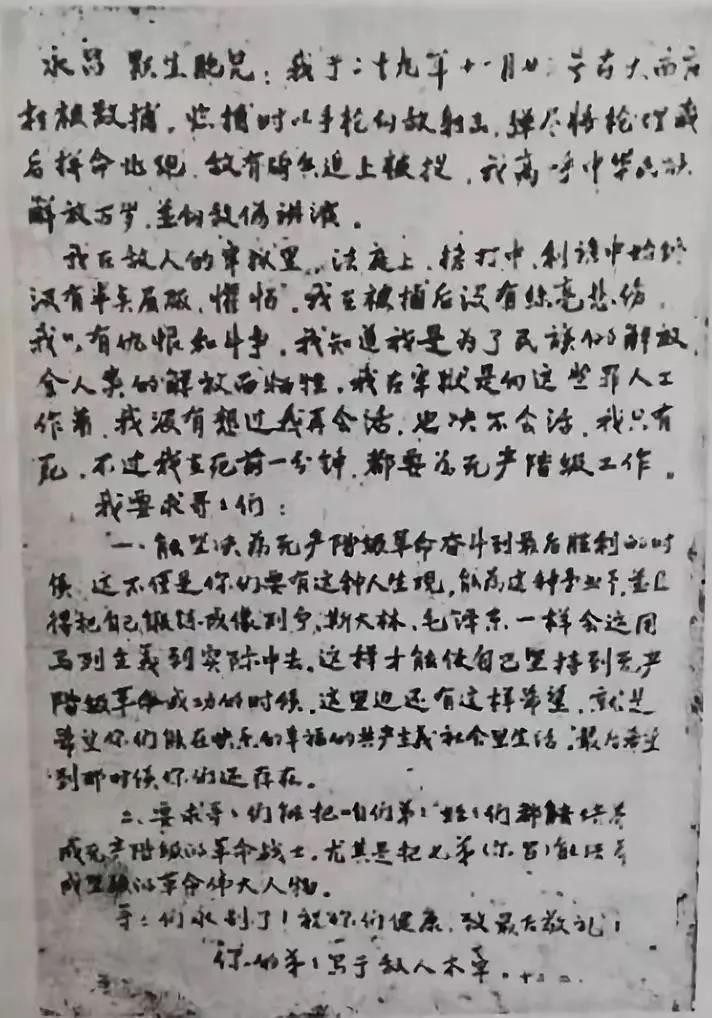 永昌 默生胞兄：我于二十九年十一月廿二号在大西庄
村被敌捕。当捕时以手枪向敌射击，弹尽将枪埋藏
后拼命北跑，敌有骑兵追上被捉，我高呼中华民族
解放万岁，并向敌伪讲演。
我在敌人的牢狱里，法庭上，拷打中，利诱中始终
没有半点屈服，惧怕。我在被捕后没有丝毫悲伤，
我只有仇恨和斗争，我知道我是为了民族的解放，
全人类的解放而牺牲，我在牢狱是向这些罪人工
作着，我没有想过我再会活，也决不会活，我只有
死，不过我在死前一分钟，都要为无产阶级工作。
我要求哥：们：
一、能坚决为无产阶级革命奋斗到最后胜利的时
候，这不仅是你们要有这种人生观，能为这种事业干，并且
得把自己锻炼成像列宁、斯大林、毛泽东一样会运用
马列主义到实际中去，这样才能使自己坚持到无产
阶级革命成功的时候，这里边还有这样希望，就是
希望你们能在快乐的幸福的共产主义社会里生活，最后希望
到那时候你们还存在。
二、要求哥：们能把咱们弟：姪：们都能培养
成无产阶级的革命战士，尤其是把七弟（永昌）能培养
成坚强的革命伟大人物。
哥：们永别了！祝你们健康，致最后敬礼！
你的弟：写于敌人木牢。